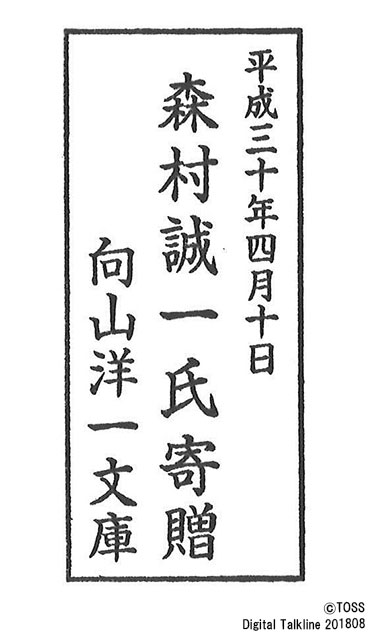 平成三十年四月十日
森村誠一氏寄贈
向山洋一文庫
©TOSS
Digital Talkline 201808